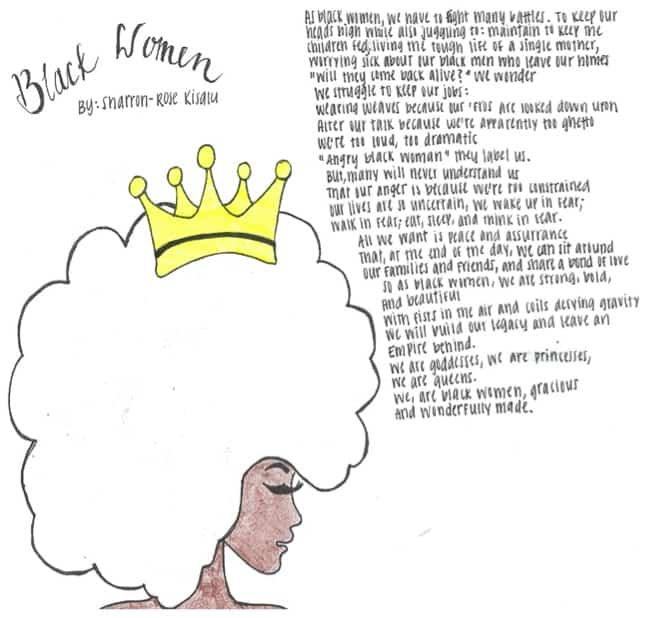 Black Women
By: Sharron-Rose Kisalu
As black women, we have to fight many battles. To keep our
heads high while also juggling to: maintain to keep the
children fed, living the tough life of a single mother,
worrying sick about our black men who leave our homes
"Will they come back alive?" we wonder
We struggle to keep our jobs:
Wearing weaves because our 'fros are looked down upon
Alter our talk because we're apparently too ghetto
We're too loud, too dramatic
"Angry black woman" they label us.
But, many will never understand us
That our anger is because we're too constrained
Our lives are so uncertain, we wake up in fear;
walk in fear; eat, sleep, and think in fear.
All we want is peace and assurrance
That, at the end of the day, we can sit around
our families and friends, and share a bond of love
So as black women, we are strong, bold,
And beautiful
With fists in the air and coils defying gravity
We will build our legacy and leave an
Empire behind.
We are goddesses, we are princesses,
We are queens.
We, are black women, gracious
And wonderfully made.